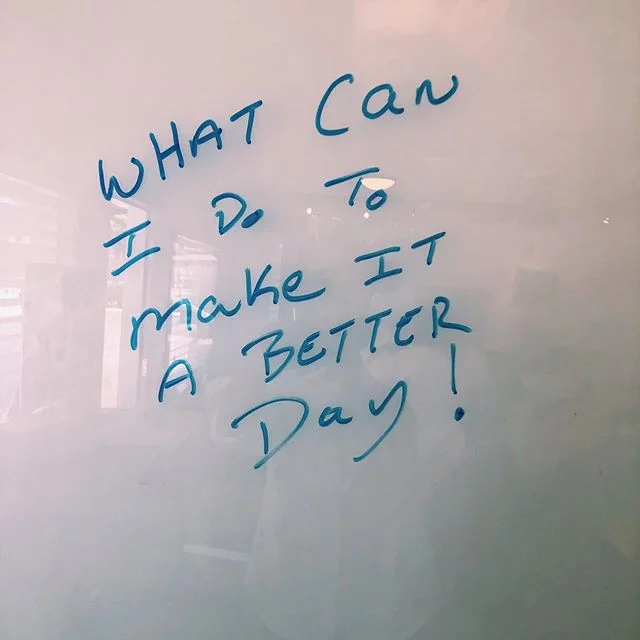 WHAT Can
I Do To
make IT
A BETTER
Day!